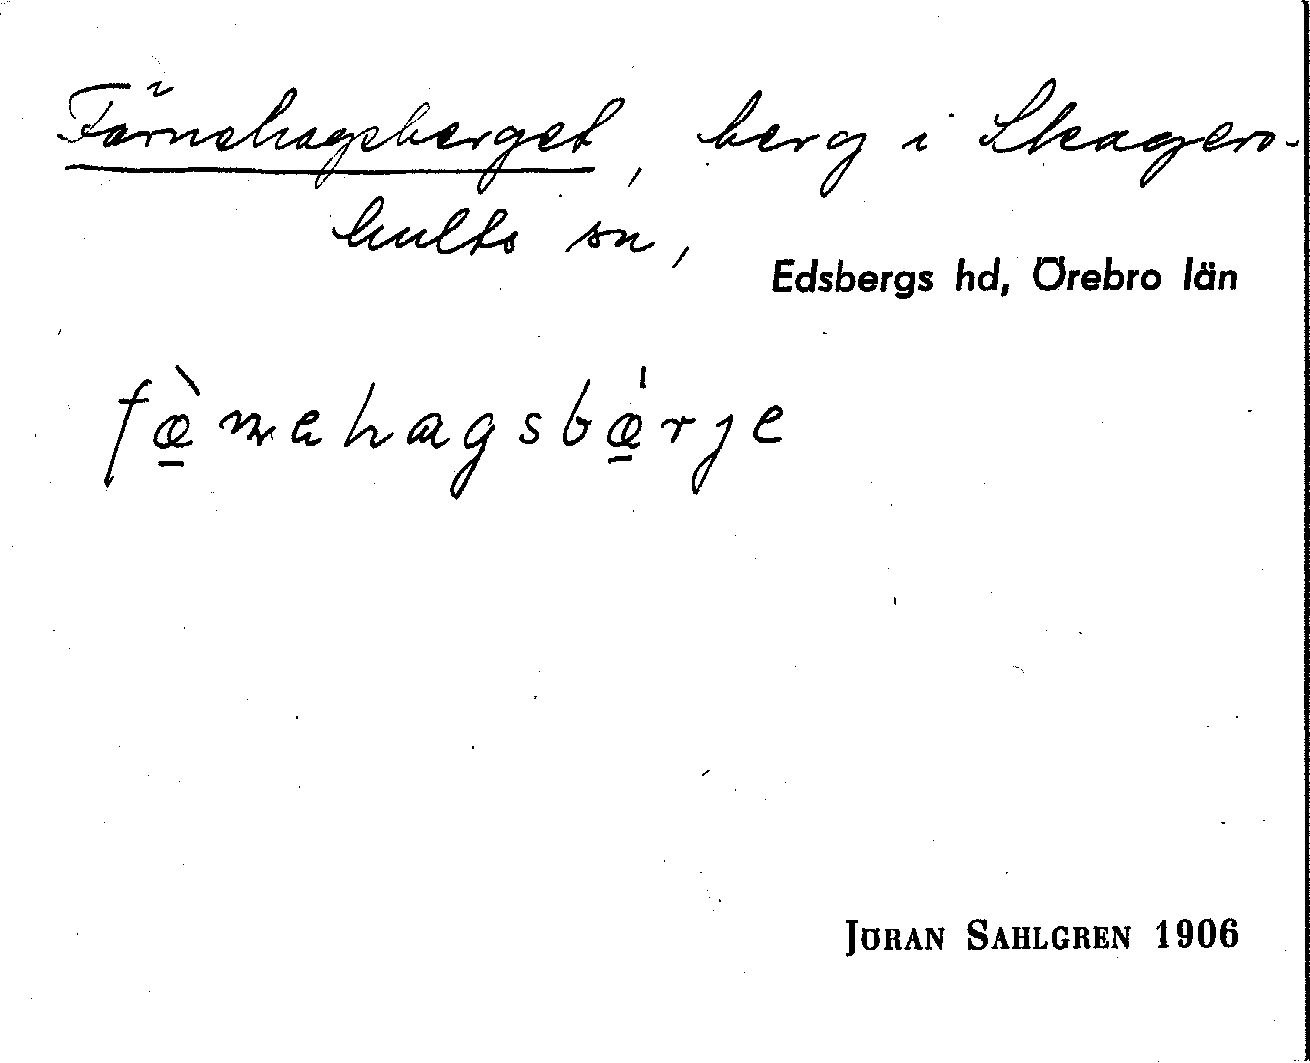 Färnehagsberget, berg i Skagers-
hults sn,
Edsbergs hd, Örebro län
fæ̀ɳehagsbǽrje
JÖRAN SAHLGREN 1906